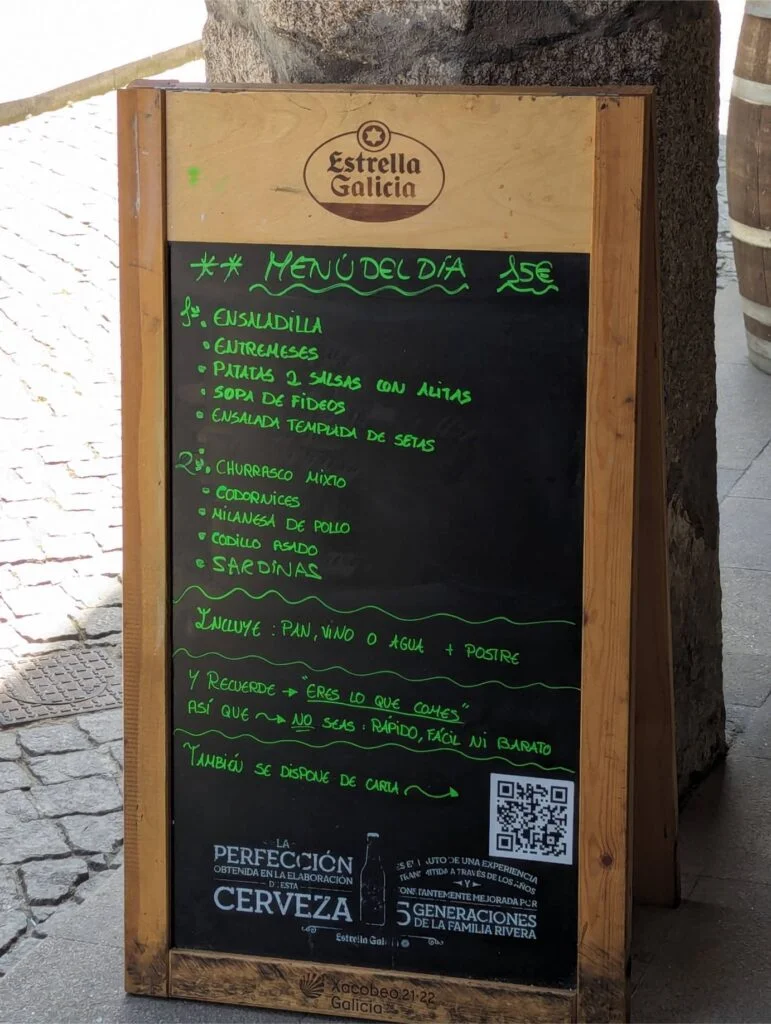 Estrella
Galicia
** MENÚ DEL DÍA 15€
1º. ENSALADILLA
• ENTREMESES
• PATATAS 2 SALSAS CON ALITAS
• SOPA DE FIDEOS
• ENSALADA TEMPLADA DE SETAS
2º. CHURRASCO MIXTO
• CODORNICES
• MILANESA DE POLLO
• CODILLO ASADO
• SARDINAS
INCLUYE : PAN, VINO O AGUA + POSTRE
Y RECUERDE → "ERES LO QUE COMES"
ASÍ QUE → NO SEAS : RÁPIDO, FÁCIL NI BARATO
TAMBIÉN SE DISPONE DE CARTA →
LA
PERFECCIÓN
OBTENIDA EN LA ELABORACIÓN
DE ESTA
CERVEZA
DE UNA EXPERIENCIA
A TRAVÉS DE LOS AÑOS
Y
CONSTANTEMENTE MEJORADA POR
5 GENERACIONES
DE LA FAMILIA RIVERA
Estrella Galicia
Xacobeo 21·22
Galicia